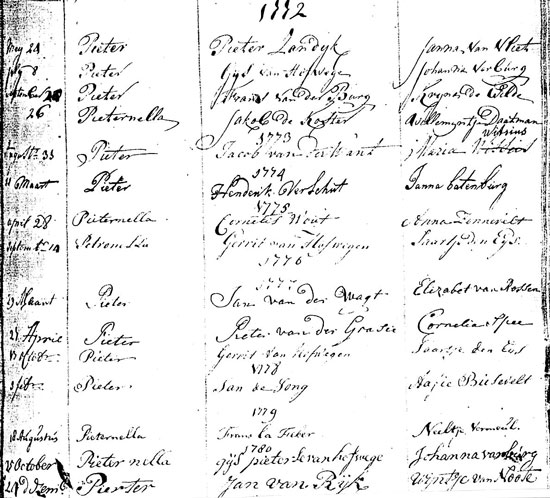 1772
Meij 24 Pieter Pieter Landijk Janna van Vliet
July 8 Pieter Gijs van Hofwege Johanna Verburg
September 20 Pieter van der Burg de Wilde
26 Pieternella Jakob de Koster Willemijntje Daatman
Witsius
1773
Augusts 31 Pieter Jacob van der Want Maria
1774
11 Maart Pieter Henderik Verschut Janna batenburg
1775
april 28 Pieternella Cornelis Wout Anna
Septembr 14 Petronella Gerrit van Hofwegen Saartje den Eijs
1776
1777
29 Maart Pieter Jan van der Wagt Elizabet van Rossen
21 April Pieter Pieter van der Graaſie Cornelia Spee
13 octobr Pieter Gerrit van hofwegen Saartje den Eys
1778
octobr Pieter Jan de Jong Aafie Bieſevelt
1779
18 Augustus Pieternella Frans la Fuber Neeltje Vermeul.
1780
October Pieternella Gijs pieterse van hofwege Johanna van burg
24 decemb Pierter Jan van Rijk Wijntje van Noote